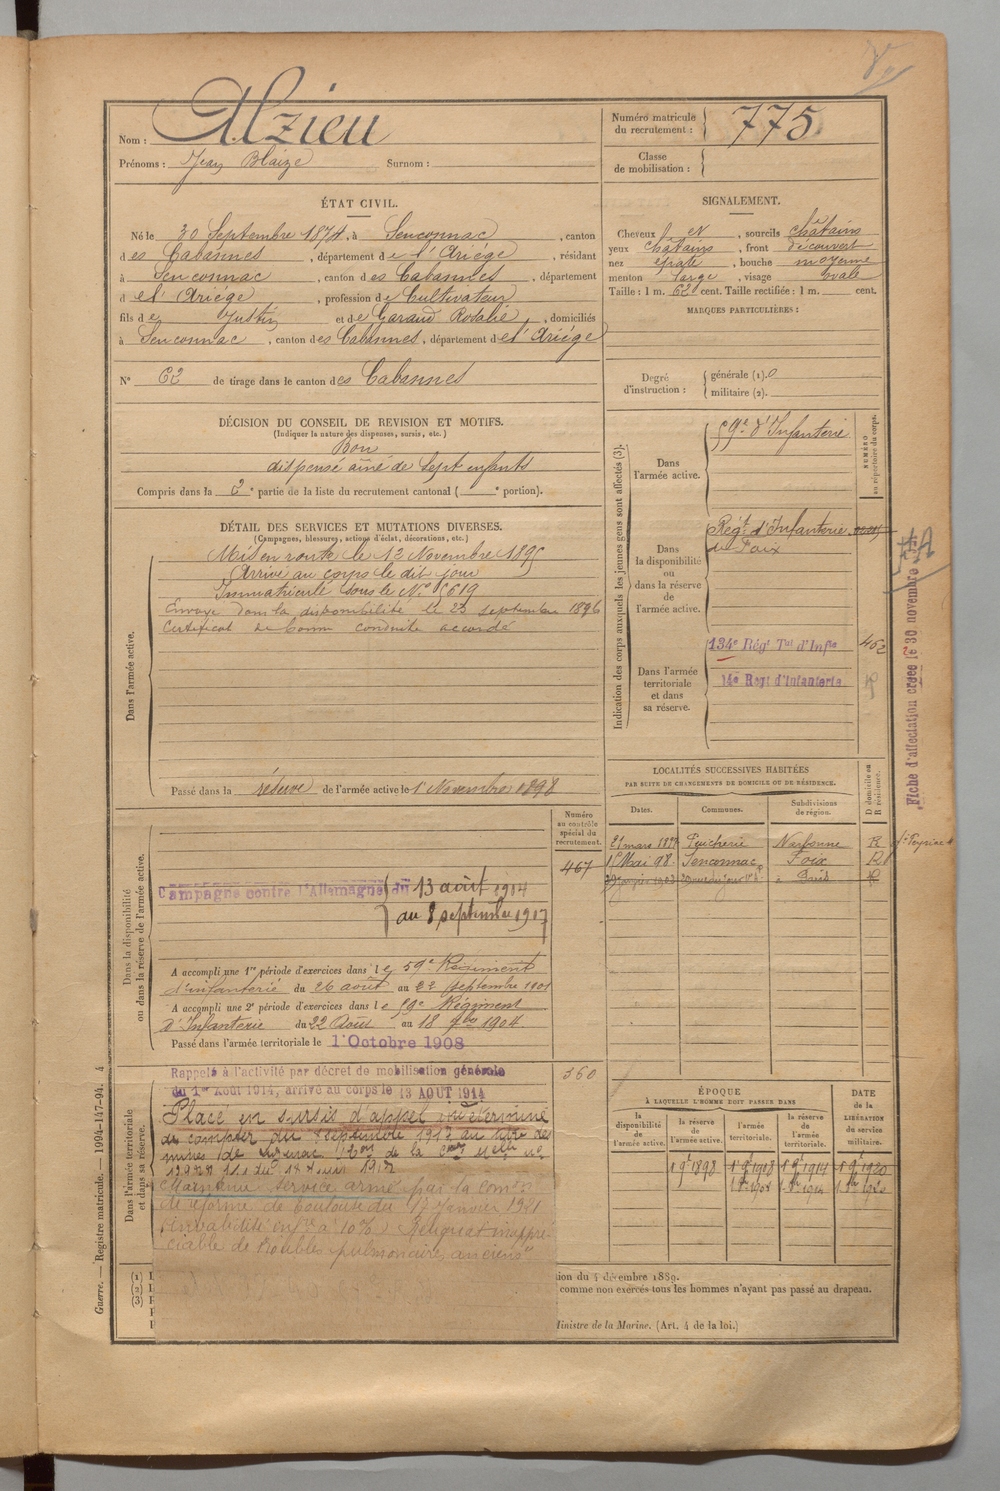 Nom : Alzieu
Prénoms : Jean Blaize Surnom :
Numéro matricule du recrutement : 775
Classe de mobilisation :
ÉTAT CIVIL.
Né le 30 Septembre 1874, à Senconnac, canton
des Cabannes, département de l'Ariège, résidant
à Senconnac, canton des Cabannes, département
de l'Ariège, profession de Cultivateur
fils de Justin et de Garaud Rosalie, domiciliés
à Senconnac, canton des Cabannes, département de l'Ariège
N° 62 de tirage dans le canton des Cabannes
SIGNALEMENT.
Cheveux et, sourcils châtains
yeux châtains, front découvert
nez épaté, bouche moyenne
menton large, visage ovale
Taille : 1 m. 62 cent. Taille rectifiée : 1 m. cent.
MARQUES PARTICULIÈRES :
Degré d'instruction : générale (1). 0
militaire (2).
DÉCISION DU CONSEIL DE REVISION ET MOTIFS.
(Indiquer la nature des dispenses, sursis, etc.)
Bon
dispensé aîné de sept enfants
Compris dans la 2e partie de la liste du recrutement cantonal ( e portion).
DÉTAIL DES SERVICES ET MUTATIONS DIVERSES.
(Campagnes, blessures, actions d'éclat, décorations, etc.)
Dans l'armée active.
Mis en route le 12 Novembre 1895
Arrivé au corps le dit jour
Immatriculé sous le N°
Envoyé dans la disponibilité le 23 septembre 1896
Certificat de bonne conduite accordé
Passé dans la réserve de l'armée active le 1er Novembre 1898
Indication des corps auxquels les jeunes gens sont affectés (3).
NUMÉRO au répertoire du corps.
Dans l'armée active.
59e d'Infanterie
Dans la disponibilité ou dans la réserve de l'armée active.
Régt d'Infanterie
de Foix
Dans l'armée territoriale et dans sa réserve.
134e Régt Tal d'Infie 462
14e Regt d'Infanterie
Fiche d'affectation créée le 30 novembre
LOCALITÉS SUCCESSIVES HABITÉES
PAR SUITE DE CHANGEMENTS DE DOMICILE OU DE RÉSIDENCE.
Dates. Communes. Subdivisions de région. D domicile ou R résidence.
21 mars 1897 Narbonne R
1er Mai 98 Senconnac Foix
Dans la disponibilité ou dans la réserve de l'armée active.
Numéro au contrôle spécial du recrutement.
467
Campagne contre l'Allemagne du 13 août 1914
au 8 septembre 1917
A accompli une 1re période d'exercices dans le 59e Régiment
d'infanterie du 26 août au 22 septembre 1901
A accompli une 2e période d'exercices dans le 59e Régiment
d'Infanterie du 22 Août au 18 7bre 1904
Passé dans l'armée territoriale le 1er Octobre 1908
Dans l'armée territoriale et dans sa réserve.
360
Rappelé à l'activité par décret de mobilisation générale
du 1er Août 1914, arrivé au corps le 13 AOUT 1914
Placé en sursis d'appel indéterminé
à compter du 8 septembre 1917 au titre des
mines de
Maintenu service armé par la Comon
de réforme de Toulouse du 17 Janvier 1921
Invalidité infre à 10% Reliquat inappré-
ciable de troubles pulmonaires anciens"
ÉPOQUE
À LAQUELLE L'HOMME DOIT PASSER DANS
la disponibilité de l'armée active. la réserve de l'armée active. l'armée territoriale. la réserve de l'armée territoriale.
DATE de la LIBÉRATION du service militaire.
1 9bre 1898 1 9bre 1908 1 9bre 1914 1 9bre 1920
(1)
(2)
(3)
ion du 4 décembre 1889.
comme non exercés tous les hommes n'ayant pas passé au drapeau.
Ministre de la Marine. (Art. 4 de la loi.)
Guerre. — Registre matricule. — 1994-147-94. 4